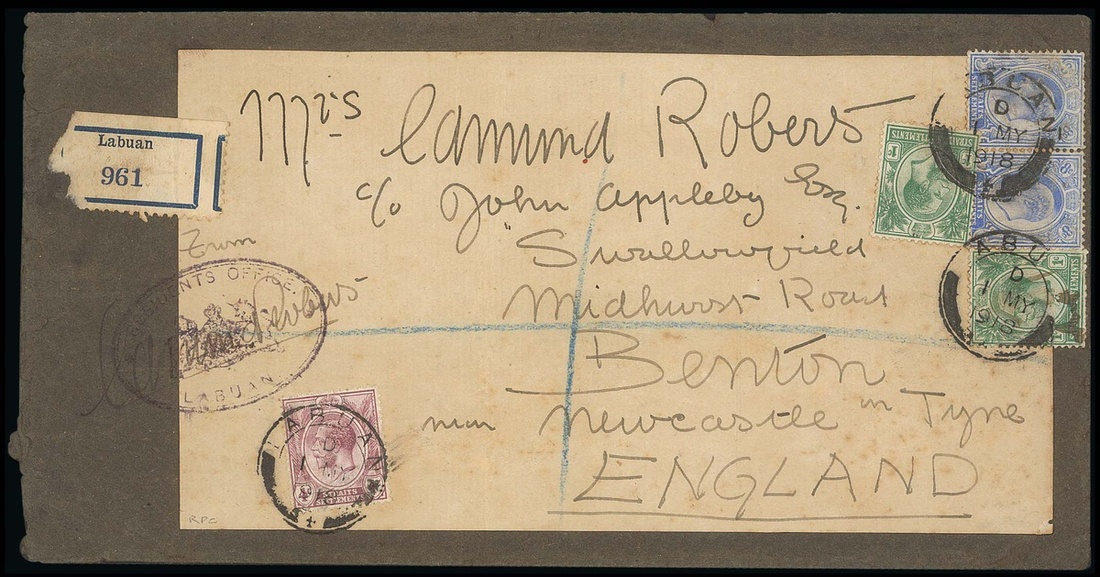 Mrs Edmund Roberts
c/o John Appleby Esq.
Swallowfield
Midhurst Road
Benton
near Newcastle on Tyne
ENGLAND
Labuan
961
From
Edmund Roberts
OFFICE
LABUAN
LABUAN
D
1 MY
STRAITS SETTLEMENTS
LABUAN
D
1 MY
1918
LABUAN
D
1 MY
1918
RPC